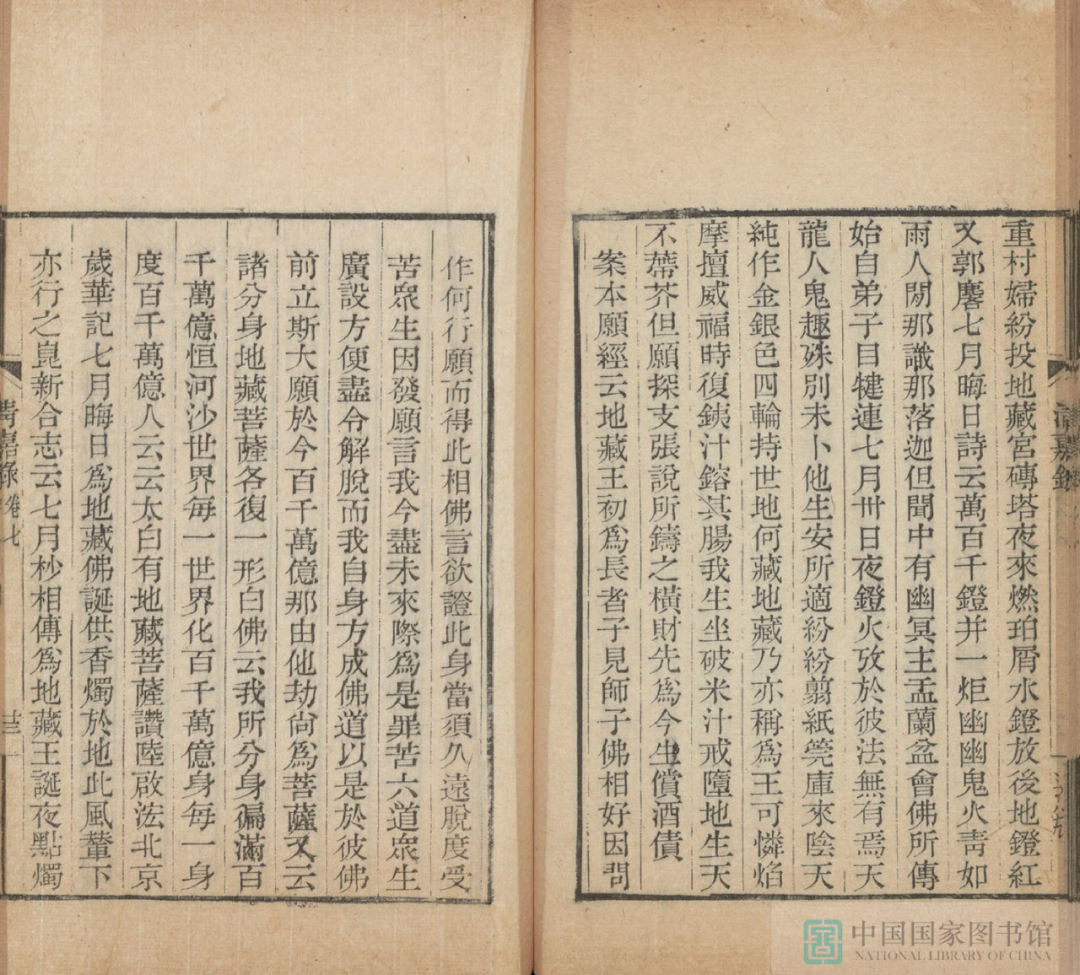 重村婦紛投地藏宮磚塔夜來燃珀屑水鐙放後地鐙紅
又郭麐七月晦日詩云萬百千鐙并一炬幽幽鬼火靑如
雨人間那識那落迦但聞中有幽冥主盂蘭盆會佛所傳
始自弟子目犍連七月卅日夜鐙火攷於彼法無有焉天
龍人鬼趣殊別未卜他生安所適紛紛翦紙筦庫來陰天
純作金銀色四輪持世地何藏地藏乃亦稱爲王可憐焰
摩擅威福時復銕汁鎔其腸我生坐破米汁戒墮地生天
不蔕芥但願探支張說所鑄之橫財先爲今生償酒債
案本願經云地藏王初爲長者子見師子佛相好因問
清嘉錄
作何行願而得此相佛言欲證此身當須久遠脫度受
苦眾生因發願言我今盡未來際爲是罪苦六道眾生
廣設方便盡令解脫而我自身方成佛道以是於彼佛
前立斯大願於今百千萬億那由他劫尙爲菩薩又云
諸分身地藏菩薩各復一形白佛云我所分身徧滿百
千萬億恒河沙世界每一世界化百千萬億身每一身
度百千萬億人云云太白有地藏菩薩讚陸啟浤北京
歲華記七月晦日爲地藏佛誕供香燭於地此風輦下
亦行之崑新合志云七月杪相傳爲地藏王誕夜點燭
清嘉錄 卷七 廿三
中国国家图书馆
NATIONAL LIBRARY OF CHINA